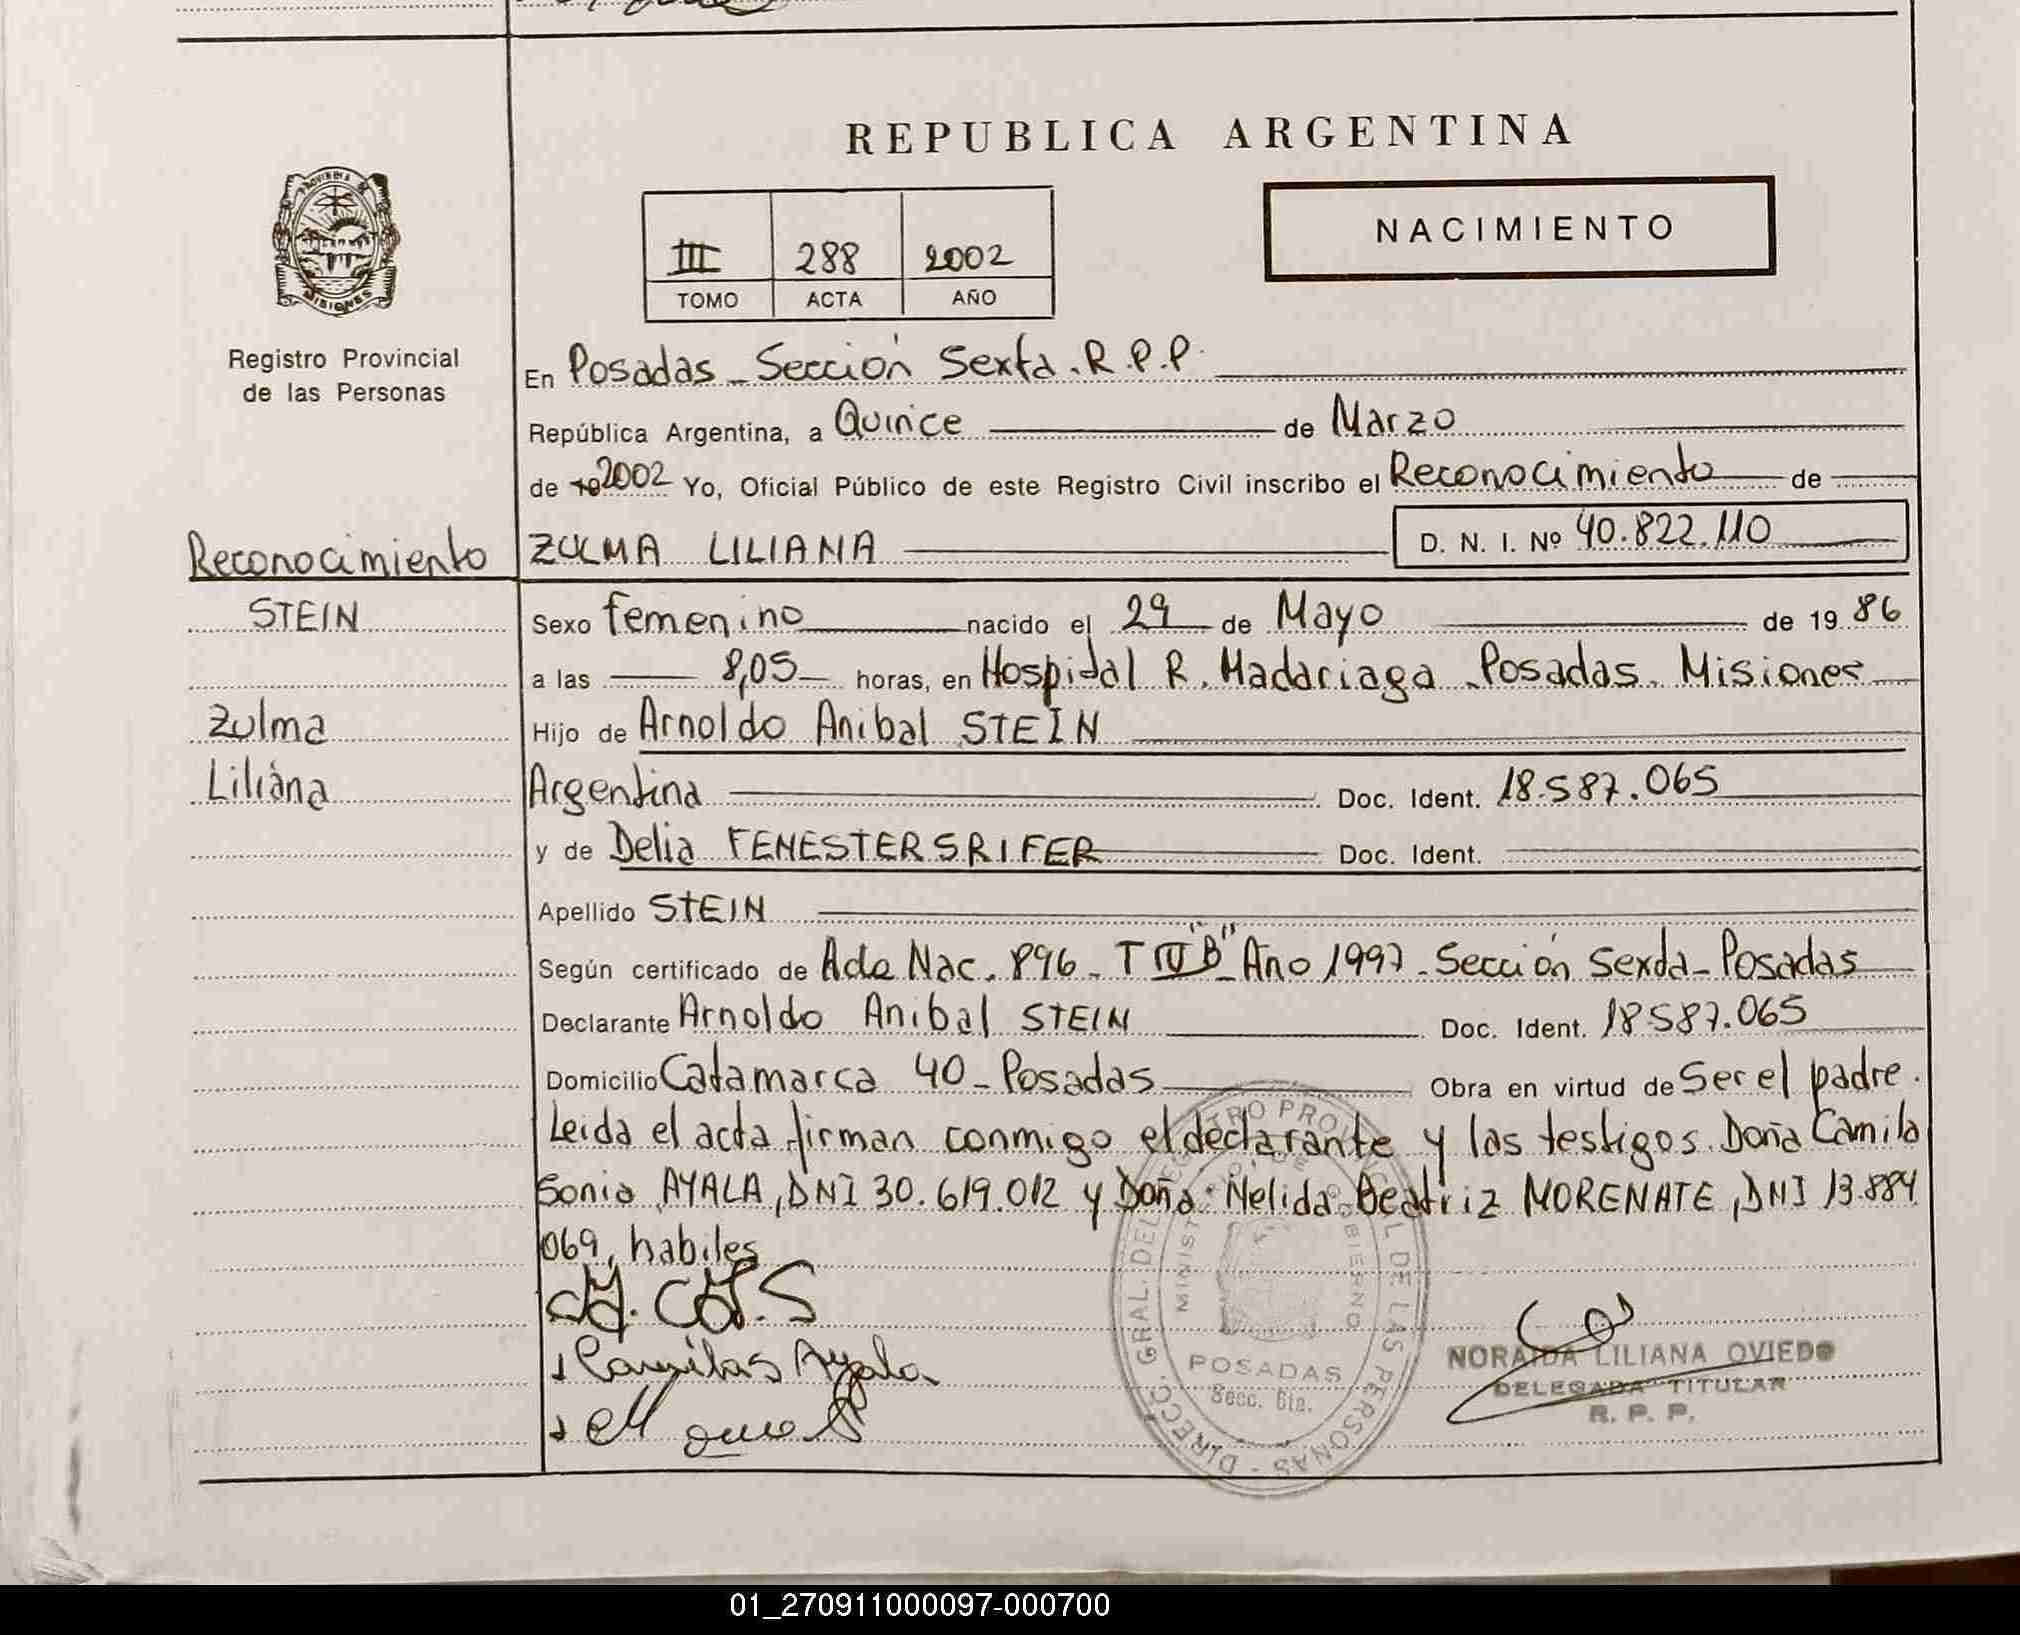 REPUBLICA ARGENTINA
PROVINCIA DE
MISIONES
Registro Provincial
de las Personas
III 288 2002
TOMO ACTA AÑO
NACIMIENTO
En Posadas - Sección Sexta. R.P.P.
República Argentina, a Quince de Marzo
de 19 2002 Yo, Oficial Público de este Registro Civil inscribo el Reconocimiento de
Reconocimiento
ZULMA LILIANA D. N. I. Nº 40.822.110
STEIN
Sexo femenino nacido el 29 de Mayo de 19 86
a las 8,05 horas, en Hospital R. Madariaga - Posadas. Misiones
Zulma
Hijo de Arnoldo Anibal STEIN
Liliana
Argentina Doc. Ident. 18.587.065
y de Delia FENESTERSRIFER Doc. Ident.
Apellido STEIN
Según certificado de Acta Nac. 896 - T IV "B" Año 1997 - Sección Sexta - Posadas
Declarante Arnoldo Anibal STEIN Doc. Ident. 18.587.065
Domicilio Catamarca 40 - Posadas Obra en virtud de Ser el padre.
Leida el acta firman conmigo el declarante y las testigos Doña Camila
Sonia AYALA, DNI 30.619.012 y Doña Nelida Beatriz MORENATE, DNI 13.884
069, habiles
Camila S Ayala
DIRECC. GRAL. DEL REGISTRO PROVINCIAL DE LAS PERSONAS
MINIST. DE GOBIERNO
POSADAS
Secc. 6ta.
NORAIDA LILIANA OVIEDO
DELEGADA TITULAR
R. P. P.
01_270911000097-000700